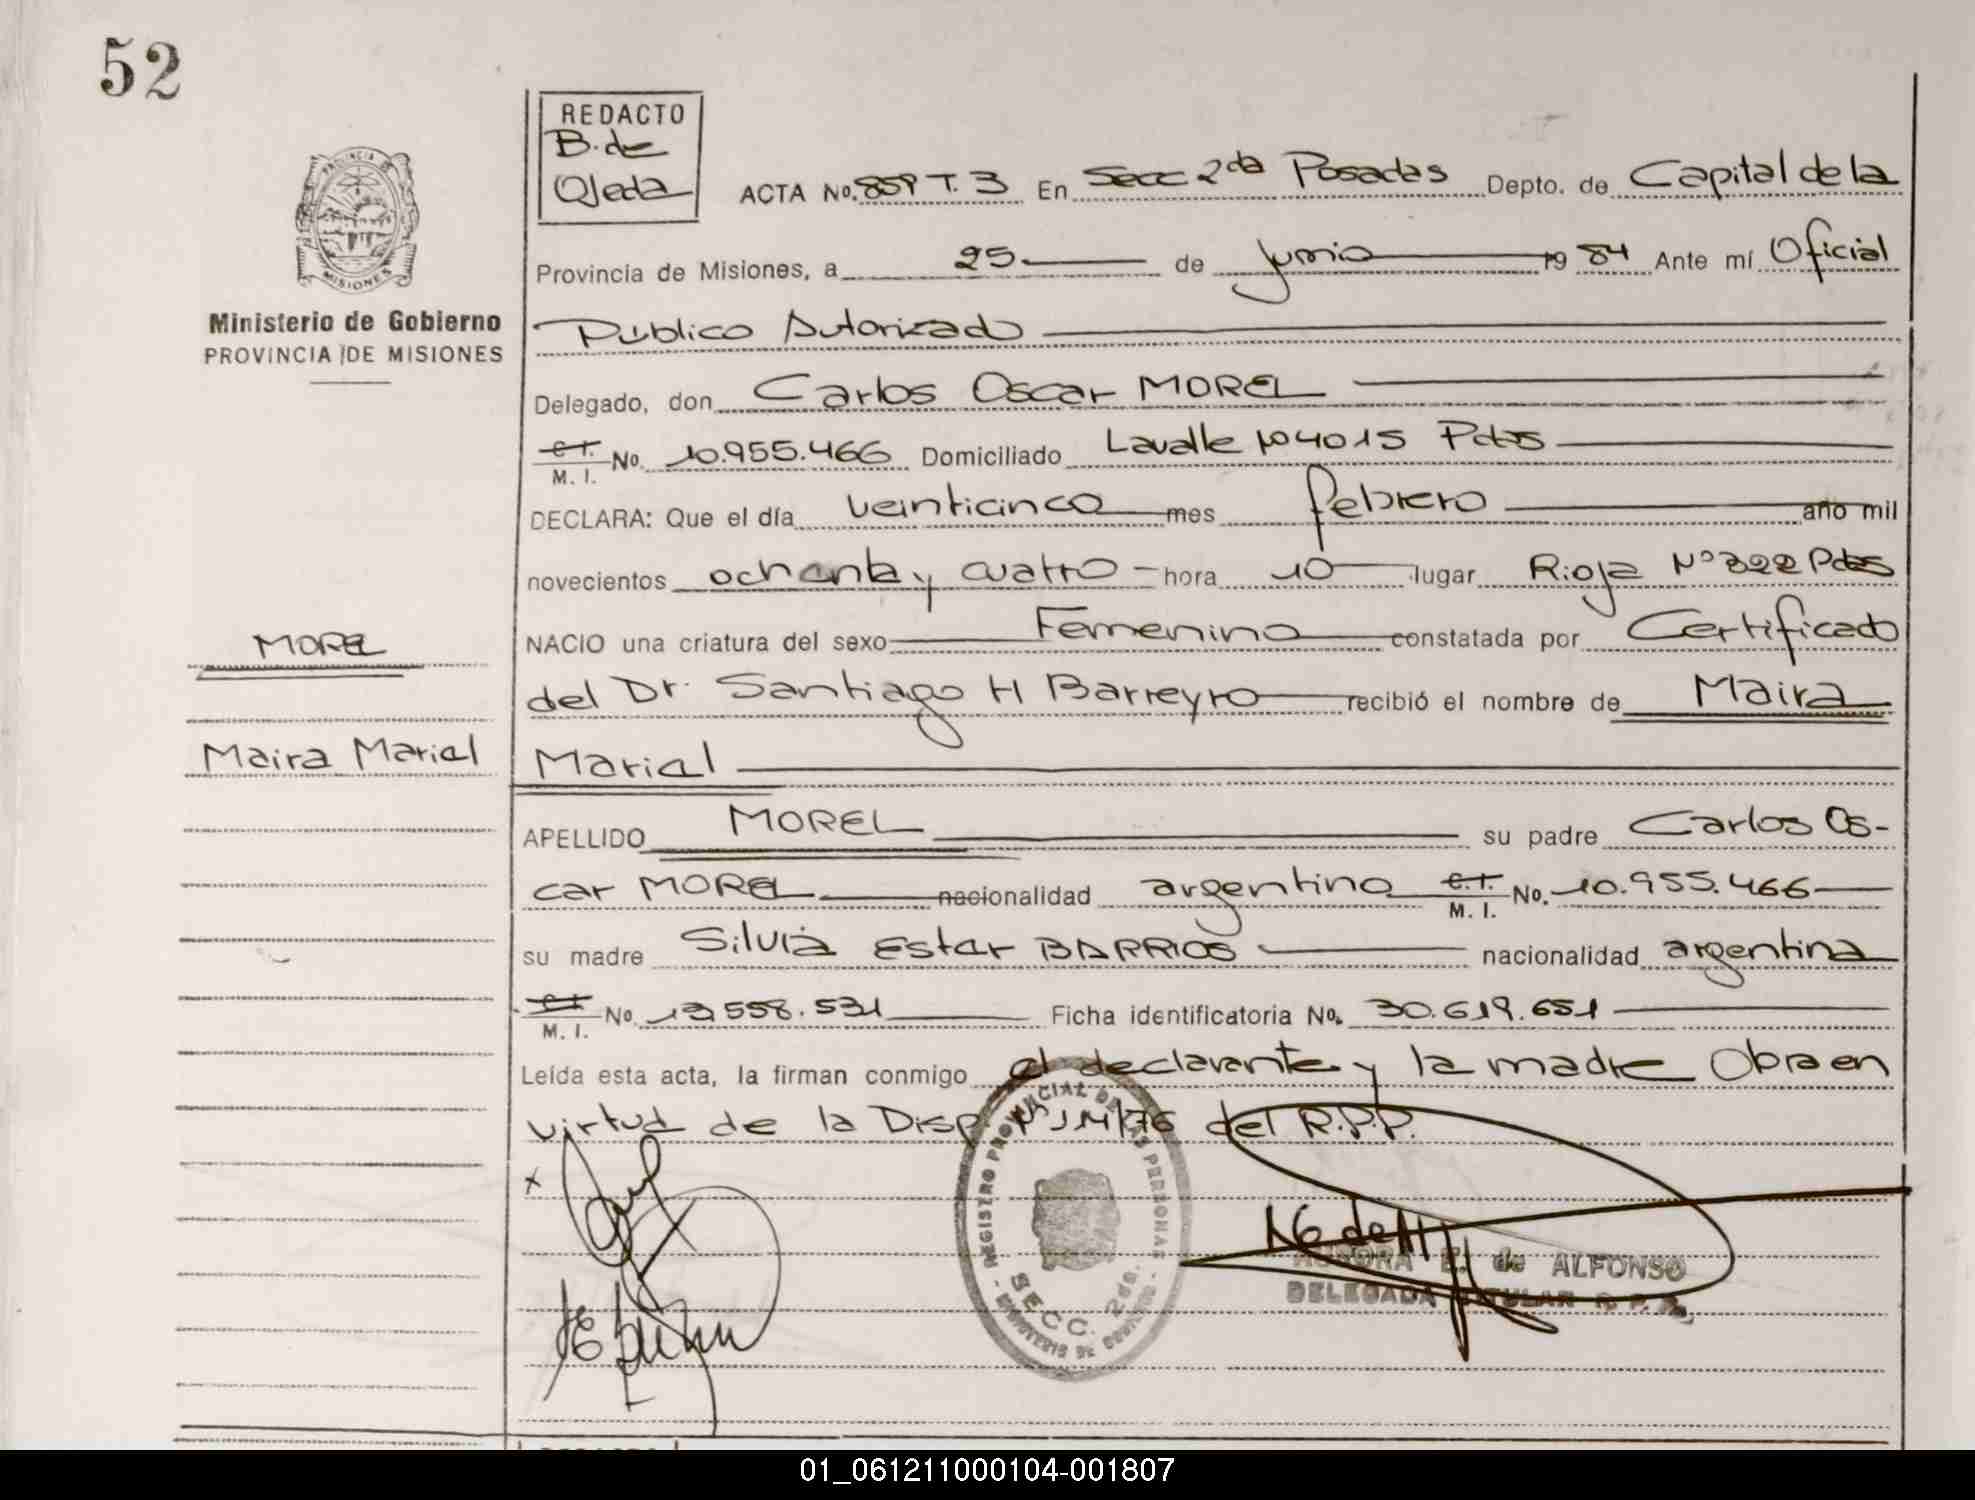 52
REDACTO
B. de
Ojeda
ACTA No. 859 T. 3 En Secc 2da Posadas Depto. de Capital de la
PROVINCIA DE
MISIONES
Provincia de Misiones, a 25 de junio 1984 Ante mí Oficial
Ministerio de Gobierno
PROVINCIA DE MISIONES
Público Autorizado
Delegado, don Carlos Oscar MOREL
C. I.
M. I. No. 10.955.466 Domiciliado Lavalle Nº 4015 Pdas
DECLARA: Que el día veinticinco mes febrero año mil
novecientos ochenta y cuatro hora 10 lugar Rioja Nº 322 Pdas
MOREL
NACIO una criatura del sexo Femenino constatada por Certificado
del Dr. Santiago H Barreyro recibió el nombre de Maira
Maira Mariel
Mariel
APELLIDO MOREL su padre Carlos Os-
car MOREL nacionalidad argentino C. I. M. I. No. 10.955.466
su madre Silvia Ester BARRIOS nacionalidad argentina
C. I.
M. I. No. 13.558.531 Ficha identificatoria No. 30.619.651
Leída esta acta, la firman conmigo el declarante y la madre Obra en
virtud de la Disp. del R.P.P.
x
REGISTRO PROVINCIAL DE LAS PERSONAS
SECC. 2da.
MINISTERIO DE GOBIERNO
E. de ALFONSO
DELEGADA TITULAR R. P. P.
01_061211000104-001807